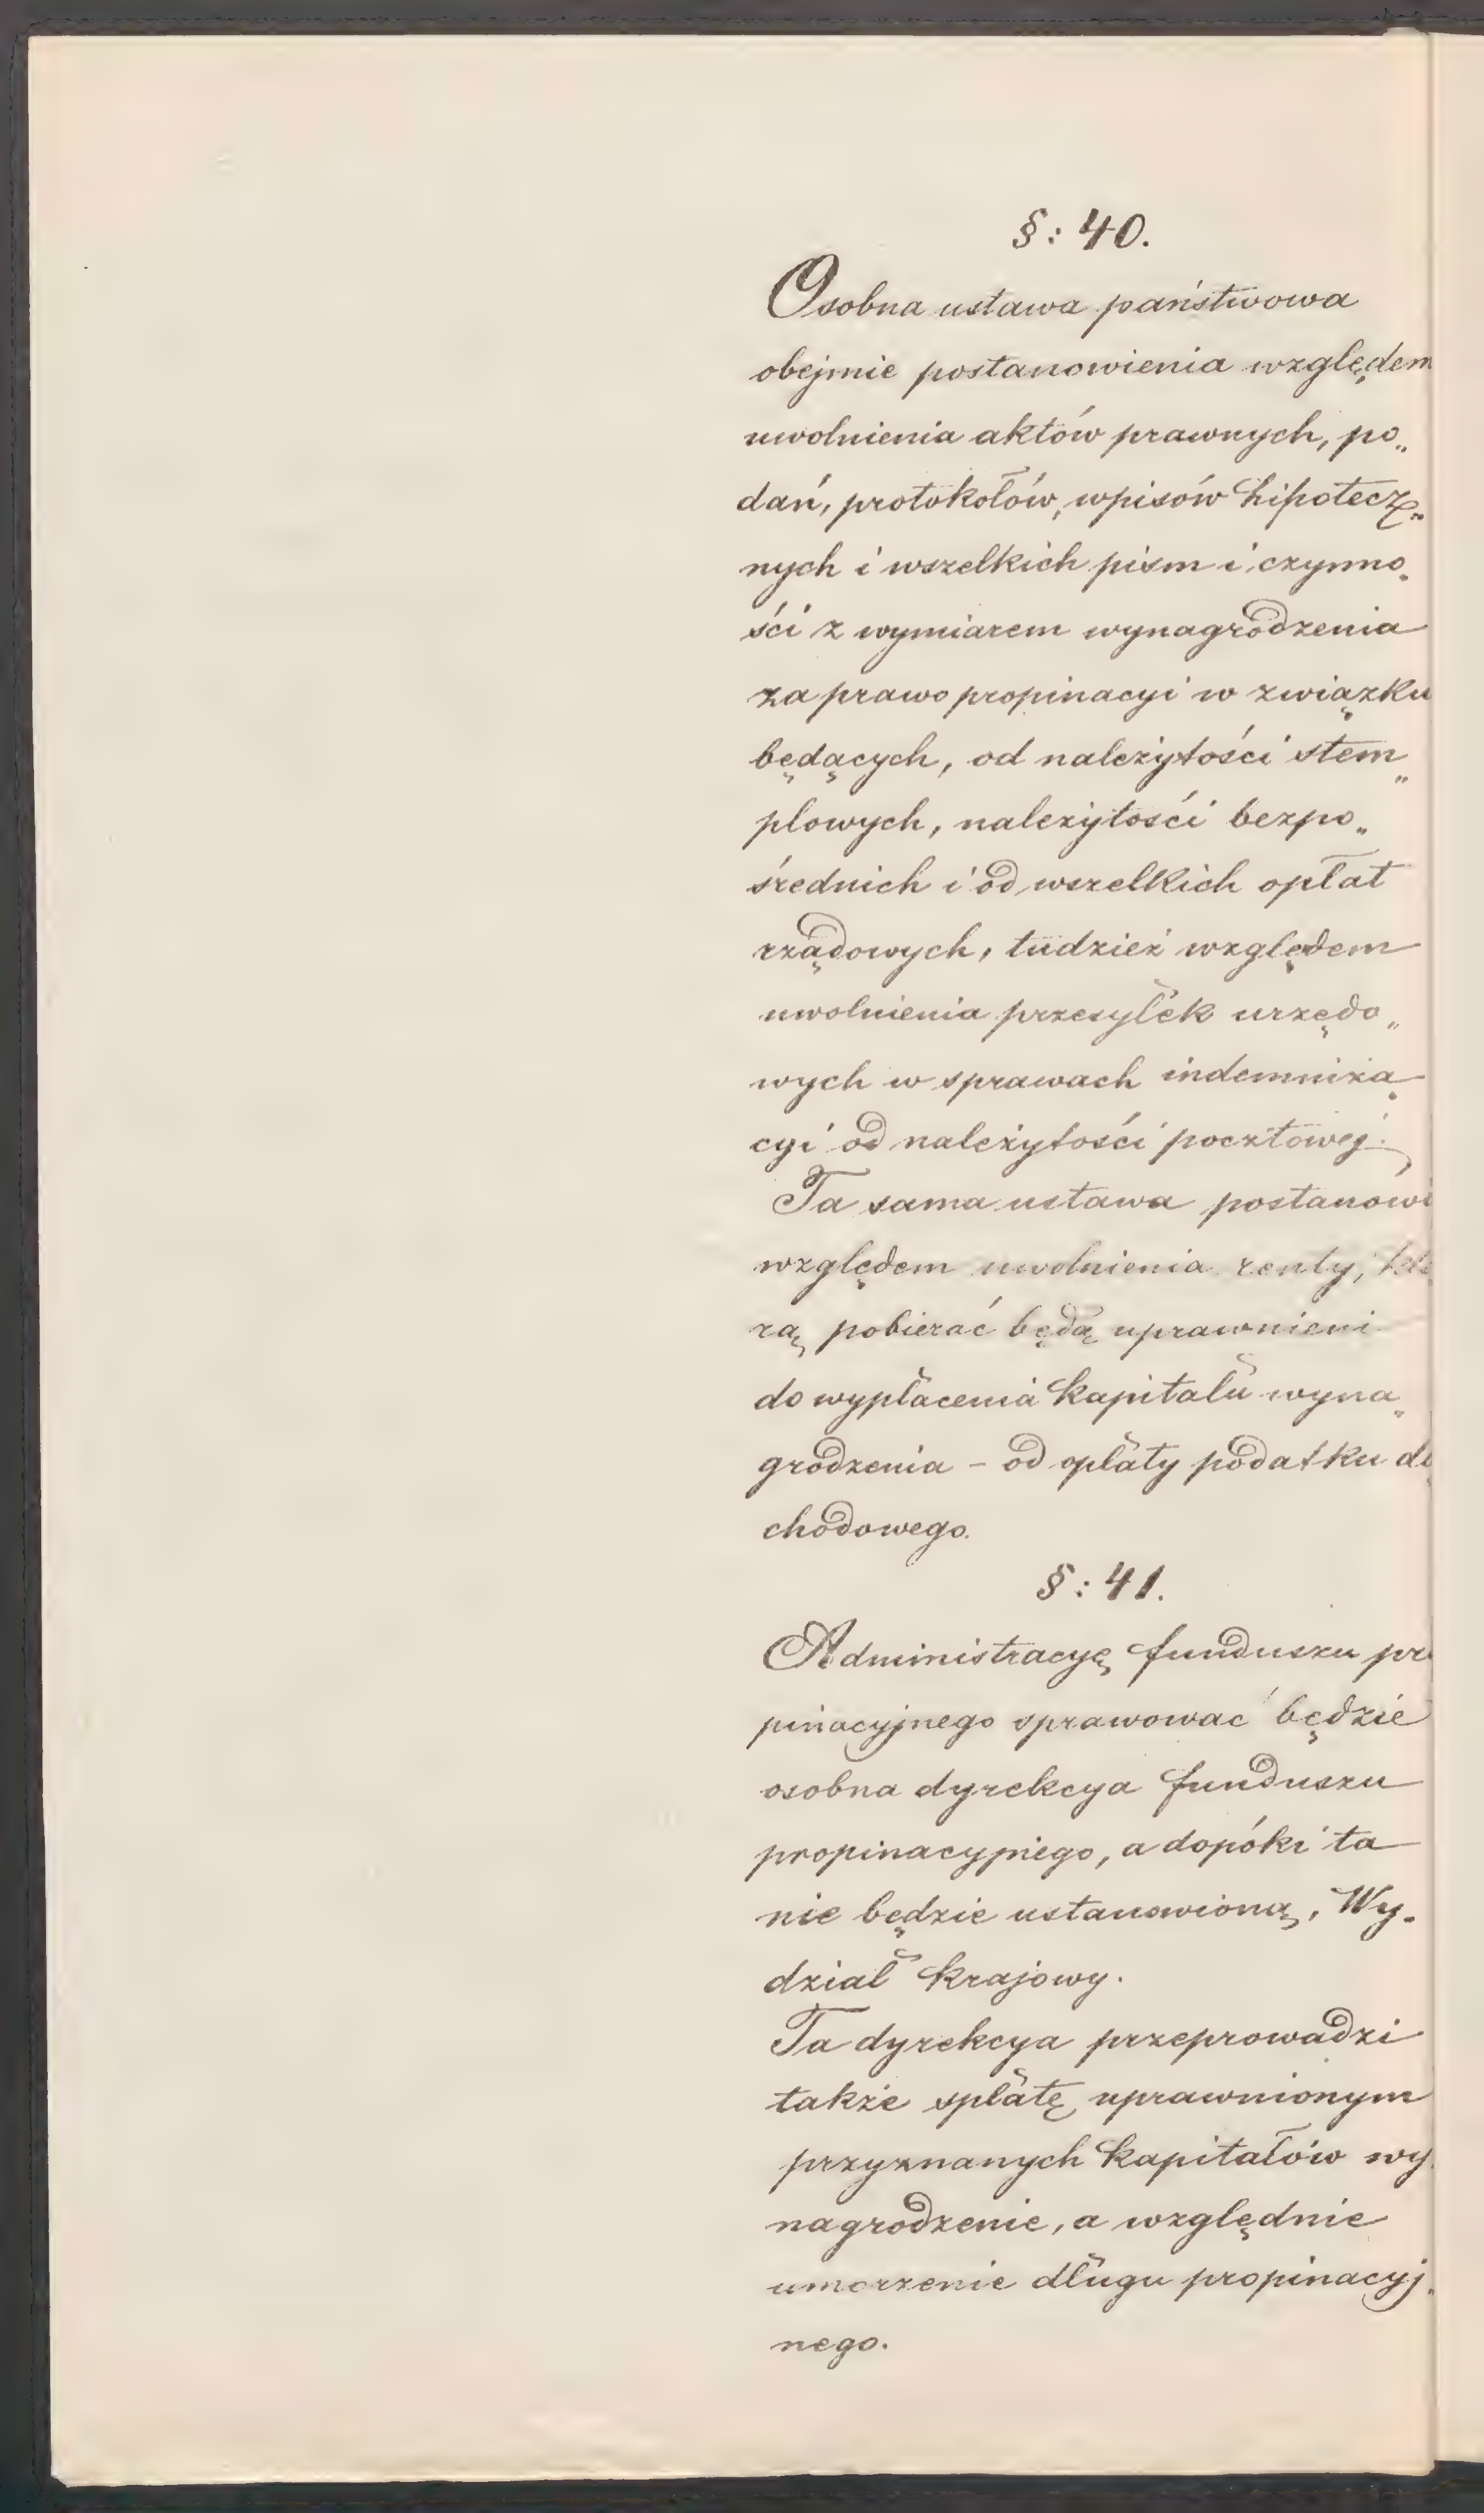 §: 40.
Osobna ustawa państwowa
obejmie postanowienia względem
uwolnienia aktów prawnych, po„
dań, protokołów, wpisów hipotecz„
nych i wszelkich pism i czynno„
ści z wymiarem wynagrodzenia
za prawo propinacyi w związku
będących, od należytości stem„
plowych, należytości bezpo„
średnich i od wszelkich opłat
rządowych, tudzież względem
uwolnienia przesyłek urzędo„
wych w sprawach indemniza„
cyi od należytości pocztowej.
Ta sama ustawa postanowi
względem uwolnienia renty, któ
rą pobierać będą uprawnieni
do wypłacenia kapitału wyna„
grodzenia – od opłaty podatku do
chodowego.
§: 41.
Administracyę funduszu pro
pinacyjnego sprawować będzie
osobna dyrekcya funduszu
propinacyjnego, a dopóki ta
nie będzie ustanowioną, Wy„
dział krajowy.
Ta dyrekcya przeprowadzi
także spłatę uprawnionym
przyznanych kapitałów wy
nagrodzenie, a względnie
umorzenie długu propinacyj„
nego.